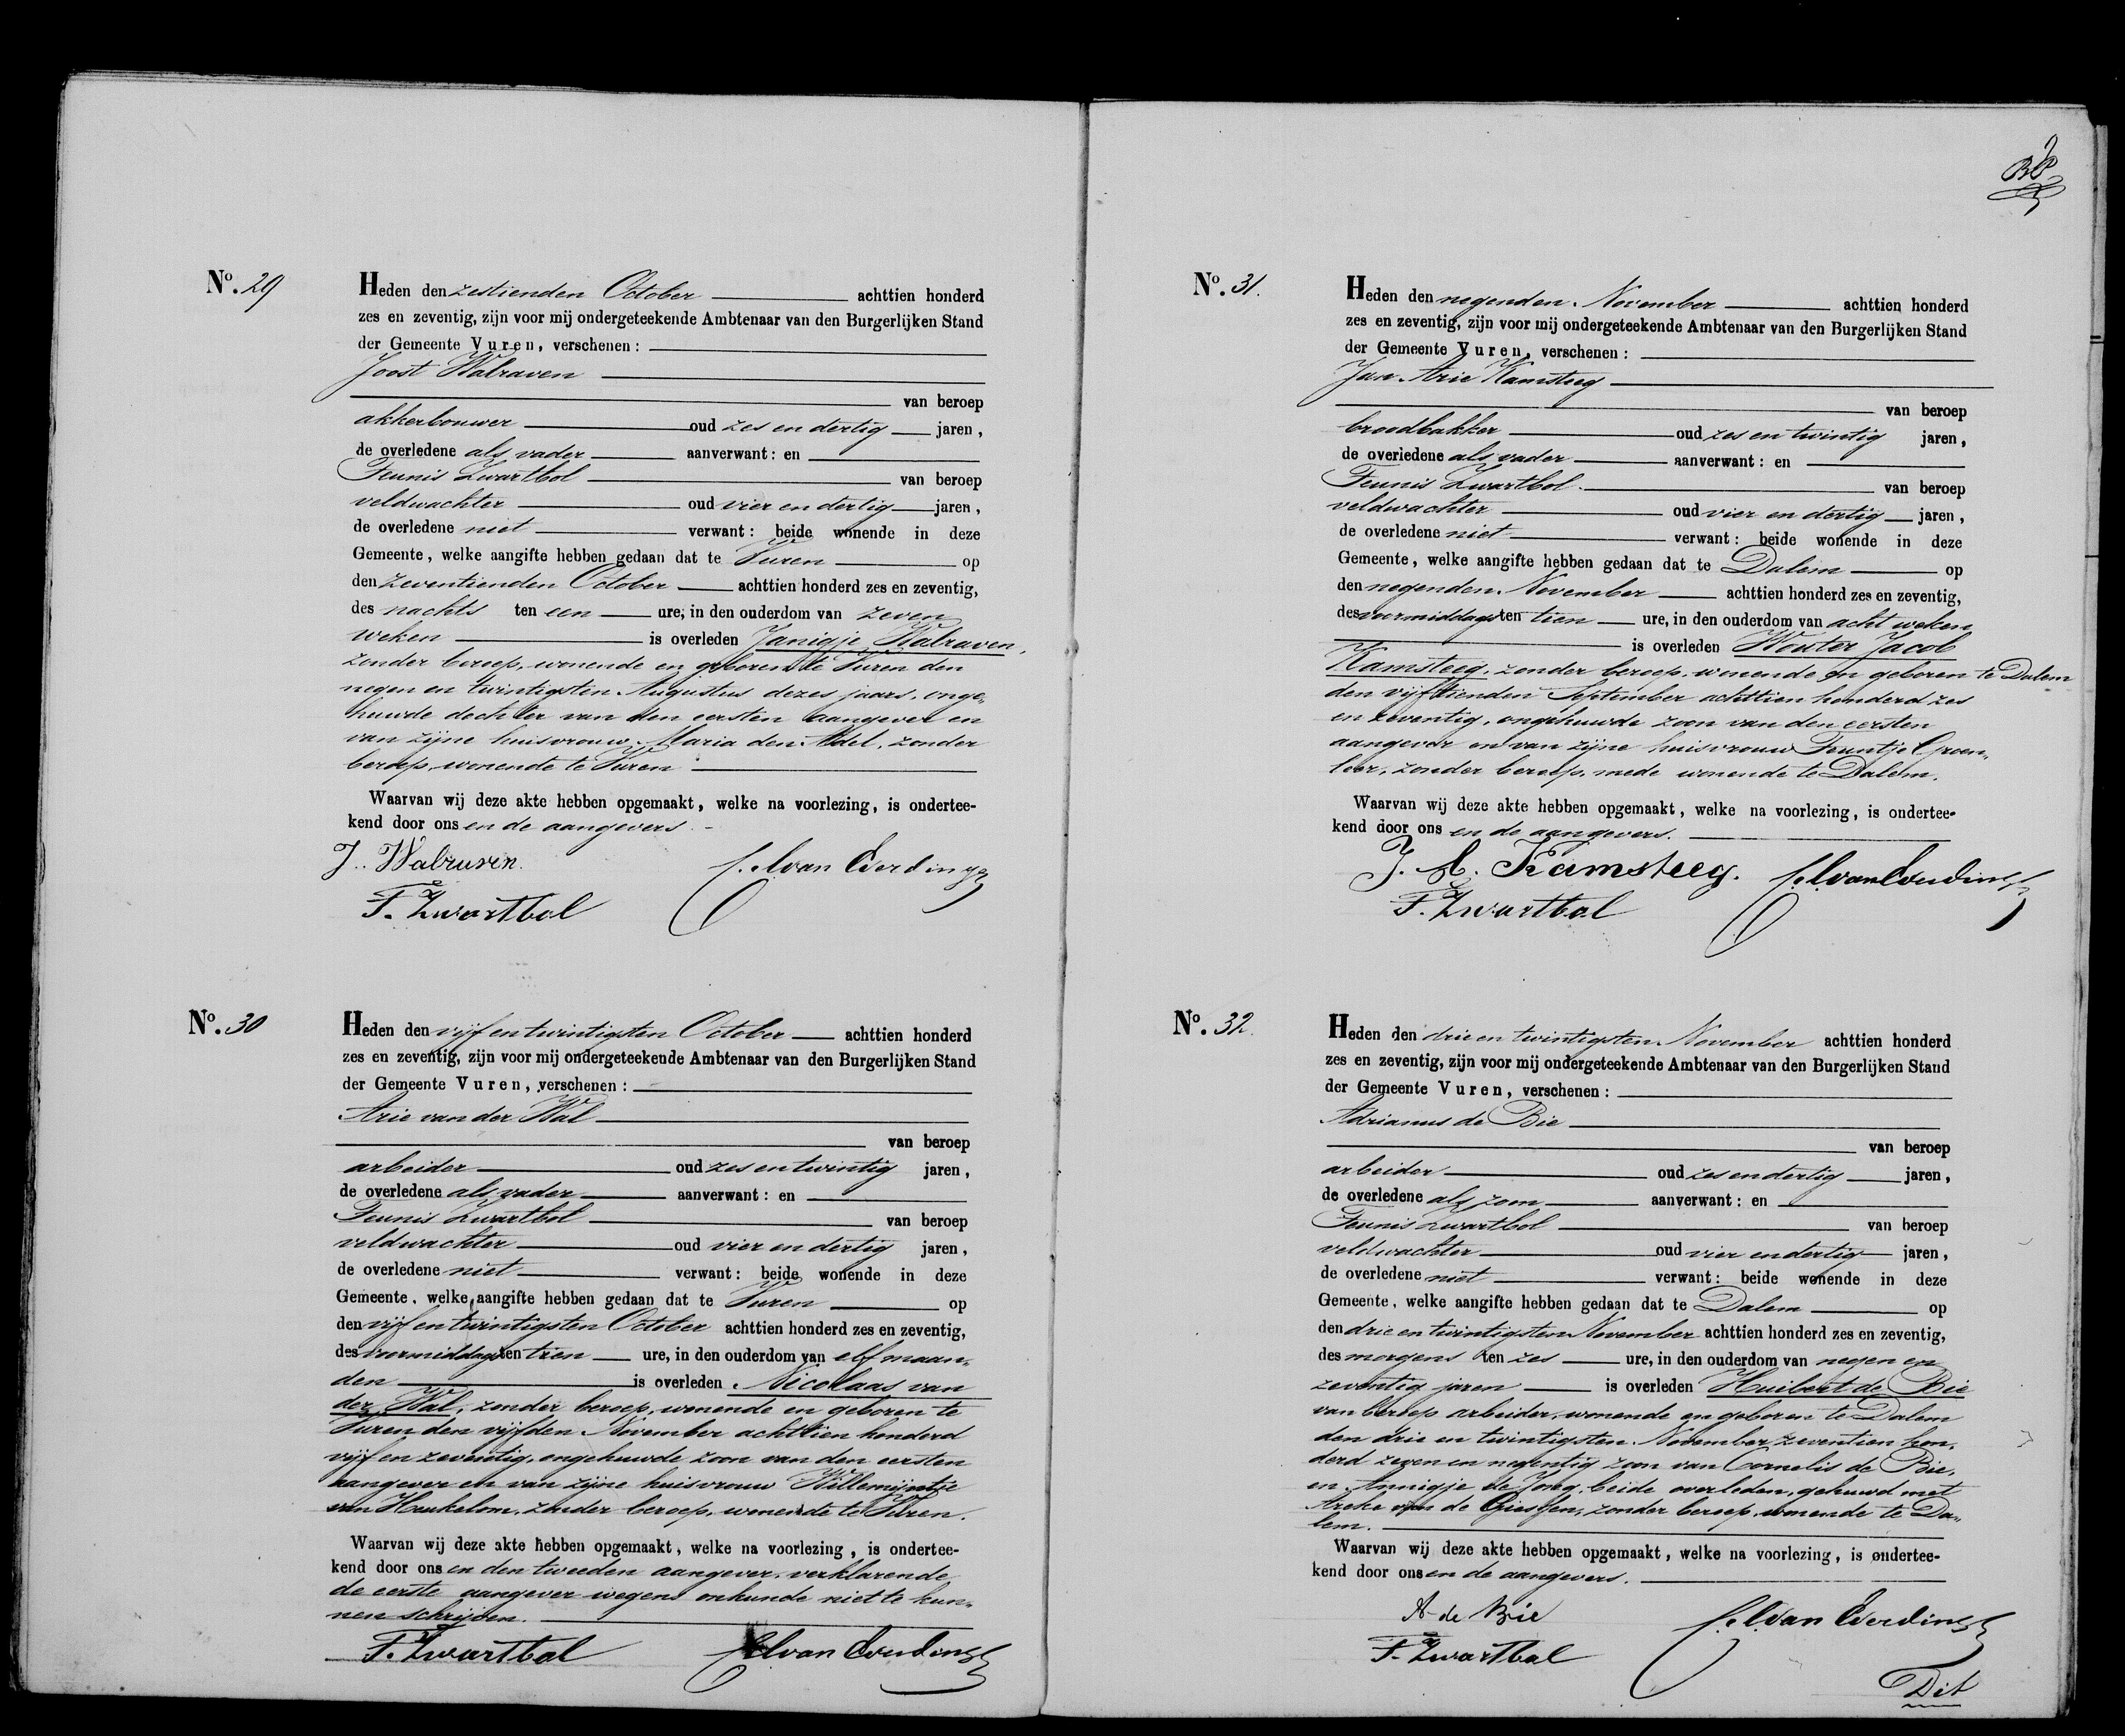 No. 29
Heden den zestienden October achttien honderd
zes en zeventig, zijn voor mij ondergeteekende Ambtenaar van den Burgerlijken Stand
der Gemeente Vuren, verschenen:
Joost Walraven
van beroep
akkerbouwer oud zes en dertig jaren,
de overledene als vader aanverwant: en
Teunis Zwartbol van beroep
veldwachter oud vier en dertig jaren,
de overledene niet verwant: beide wonende in deze
Gemeente, welke aangifte hebben gedaan dat te Vuren op
den zeventienden October achttien honderd zes en zeventig,
des nachts ten een ure, in den ouderdom van zeven
weken is overleden Janigje Walraven,
zonder beroep, wonende en geboren te Vuren den
negen en twintigsten Augustus dezes jaars, onge-
huwde dochter van den eersten aangever en
van zijne huisvrouw Maria den Adel, zonder
beroep, wonende te Vuren
Waarvan wij deze akte hebben opgemaakt, welke na voorlezing, is ondertee-
kend door ons en de aangevers.
J. Walraven.
T. Zwartbol
No. 30
Heden den vijf en twintigsten October achttien honderd
zes en zeventig, zijn voor mij ondergeteekende Ambtenaar van den Burgerlijken Stand
der Gemeente Vuren, verschenen:
Arie van der Wal
van beroep
arbeider oud zes en twintig jaren,
de overledene als vader aanverwant: en
Teunis Zwartbol van beroep
veldwachter oud vier en dertig jaren,
de overledene niet verwant: beide wonende in deze
Gemeente, welke aangifte hebben gedaan dat te Vuren op
den vijf en twintigsten October achttien honderd zes en zeventig,
des voormiddags ten tien ure, in den ouderdom van elf maan-
den is overleden Nicolaas van
der Wal, zonder beroep, wonende en geboren te
Vuren den vijfden November achttien honderd
vijf en zeventig, ongehuwde zoon van den eersten
aangever en van zijne huisvrouw Willemijntje
van Heukelom, zonder beroep, wonende te Vuren.
Waarvan wij deze akte hebben opgemaakt, welke na voorlezing, is ondertee-
kend door ons en den tweeden aangever, verklarende
de eerste aangever wegens onkunde niet te kun-
nen schrijven.
T. Zwartbol
No. 31.
Heden den negenden November achttien honderd
zes en zeventig, zijn voor mij ondergeteekende Ambtenaar van den Burgerlijken Stand
der Gemeente Vuren, verschenen:
Jan Arie Kamsteeg
van beroep
broodbakker oud zes en twintig jaren,
de overledene als vader aanverwant: en
Teunis Zwartbol. van beroep
veldwachter oud vier en dertig jaren,
de overledene niet verwant: beide wonende in deze
Gemeente, welke aangifte hebben gedaan dat te Dalem op
den negenden November achttien honderd zes en zeventig,
des voormiddags ten tien ure, in den ouderdom van acht weken
is overleden Wouter Jacob
Kamsteeg, zonder beroep, wonende en geboren te Dalem
den vijftienden September achttien honderd zes
en zeventig, ongehuwde zoon van den eersten
aangever en van zijne huisvrouw Teuntje Groen-
leer, zonder beroep, mede wonende te Dalem.
Waarvan wij deze akte hebben opgemaakt, welke na voorlezing, is ondertee-
kend door ons en de aangevers.
J. A. Kamsteeg.
T. Zwartbol
No. 32.
Heden den drie en twintigsten November achttien honderd
zes en zeventig, zijn voor mij ondergeteekende Ambtenaar van den Burgerlijken Stand
der Gemeente Vuren, verschenen:
Adrianus de Bie
van beroep
arbeider oud zes en dertig jaren,
de overledene als zoon aanverwant: en
Teunis Zwartbol van beroep
veldwachter oud vier en dertig jaren,
de overledene niet verwant: beide wonende in deze
Gemeente, welke aangifte hebben gedaan dat te Dalem op
den drie en twintigsten November achttien honderd zes en zeventig,
des morgens ten zes ure, in den ouderdom van negen en
zeventig jaren is overleden Huibert de Bie
van beroep arbeider, wonende en geboren te Dalem
den drie en twintigsten November zeventien hon-
derd zeven en negentig zoon van Cornelis de Bie,
en Annigje de Jong, beide overleden, gehuwd met
van de Giessen, zonder beroep, wonende te Da-
lem.
Waarvan wij deze akte hebben opgemaakt, welke na voorlezing, is ondertee-
kend door ons en de aangevers.
A de Bie
T. Zwartbol
Dit